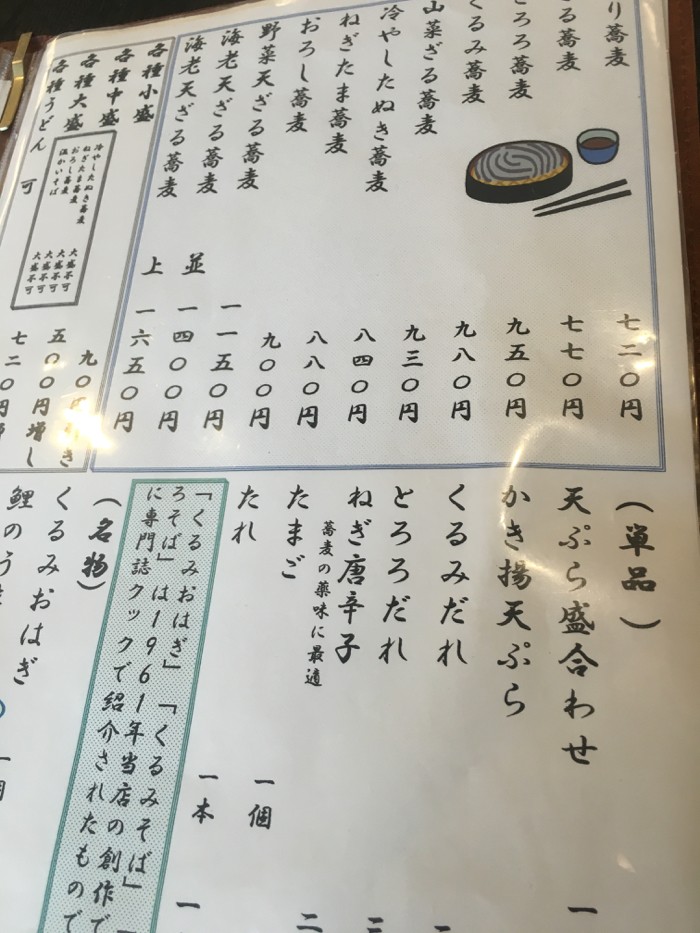 り蕎麦 七二〇円
る蕎麦 七七〇円
ろろ蕎麦 九五〇円
くるみ蕎麦 九八〇円
山菜ざる蕎麦 九三〇円
冷やしたぬき蕎麦 八四〇円
ねぎたま蕎麦 八八〇円
おろし蕎麦 九〇〇円
野菜天ざる蕎麦 一一五〇円
海老天ざる蕎麦 並 一四〇〇円
海老天ざる蕎麦 上 一六五〇円
各種小盛 九〇円引き
各種中盛
各種大盛
各種うどん 可
冷やしたぬき蕎麦 大盛不可
ねぎたま蕎麦 大盛不可
おろし蕎麦 大盛不可
温かいそば 大盛不可
(単品)
天ぷら盛合わせ 一
かき揚天ぷら
くるみだれ
とろろだれ
ねぎ唐辛子
蕎麦の薬味に最適
たまご 一個
たれ 一本 一
「くるみおはぎ」「くるみそば」「
ろそば」は1961年当店の創作で
に専門誌クックで紹介されたもので
(名物)
くるみおはぎ
鯉のう